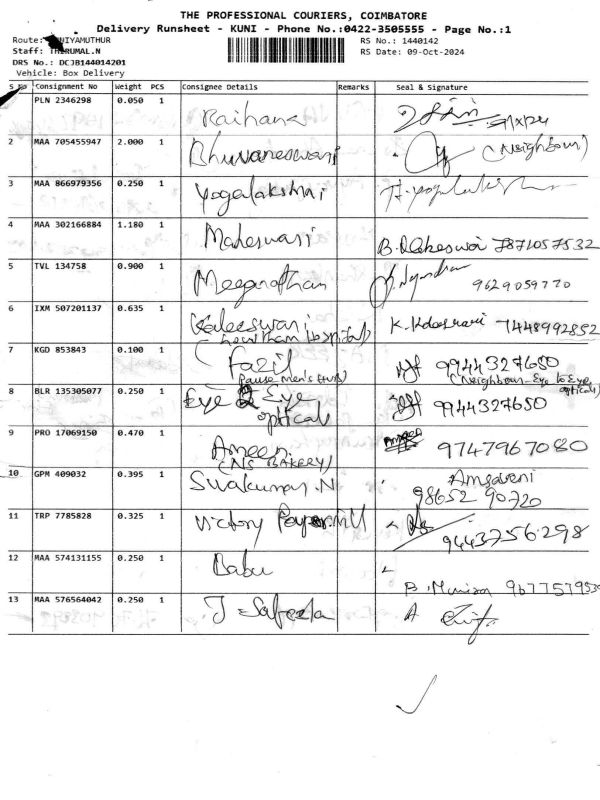 THE PROFESSIONAL COURIERS, COIMBATORE
Delivery Runsheet - KUNI - Phone No.:0422-3505555 - Page No.:1
Route: NIYAMUTHUR
RS No.: 1440142
Staff: THIRUMAL.N
RS Date: 09-Oct-2024
DRS No.: DCJB144014201
Vehicle: Box Delivery
S No Consignment No Weight PCS Consignee Details Remarks Seal & Signature
PLN 2346298 0.050 1 Raihana
2 MAA 705455947 2.000 1 Bhuvaneswari (Neighbour)
3 MAA 866979356 0.250 1 Yogalakshmi
4 MAA 302166884 1.180 1 Maheswari 7871057532
5 TVL 134758 0.900 1 Meeganathan 9629059770
6 IXM 507201137 0.635 1 Kaleeswari 7448992852
Hospital)
7 KGD 853843 0.100 1 Fazil 9944327650
(Pause men's (Neighbour Eye to Eye
opticals)
8 BLR 135305077 0.250 1 Eye Eye 9944327650
opticals
9 PRO 17069150 0.470 1 Ameen 9747967080
(NS BAKERY)
10 GPM 409032 0.395 1 Sivakumar.N Amsaveni
98652 90720
11 TRP 7785828 0.325 1 Victory Paper mill
9443756298
12 MAA 574131155 0.250 1 Babu
13 MAA 576564042 0.250 1 J Sabeela